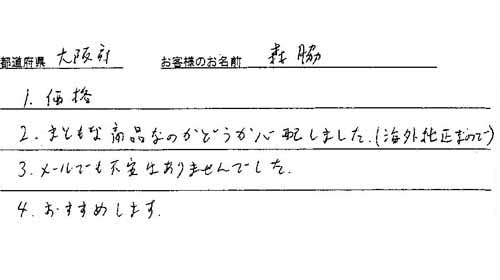 都道府県 大阪府 お客様のお名前 森脇
1. 価格
2. まともな商品なのかどうか心配しました。(海外純正なので)
3. メールでも不安はありませんでした。
4. おすすめします。